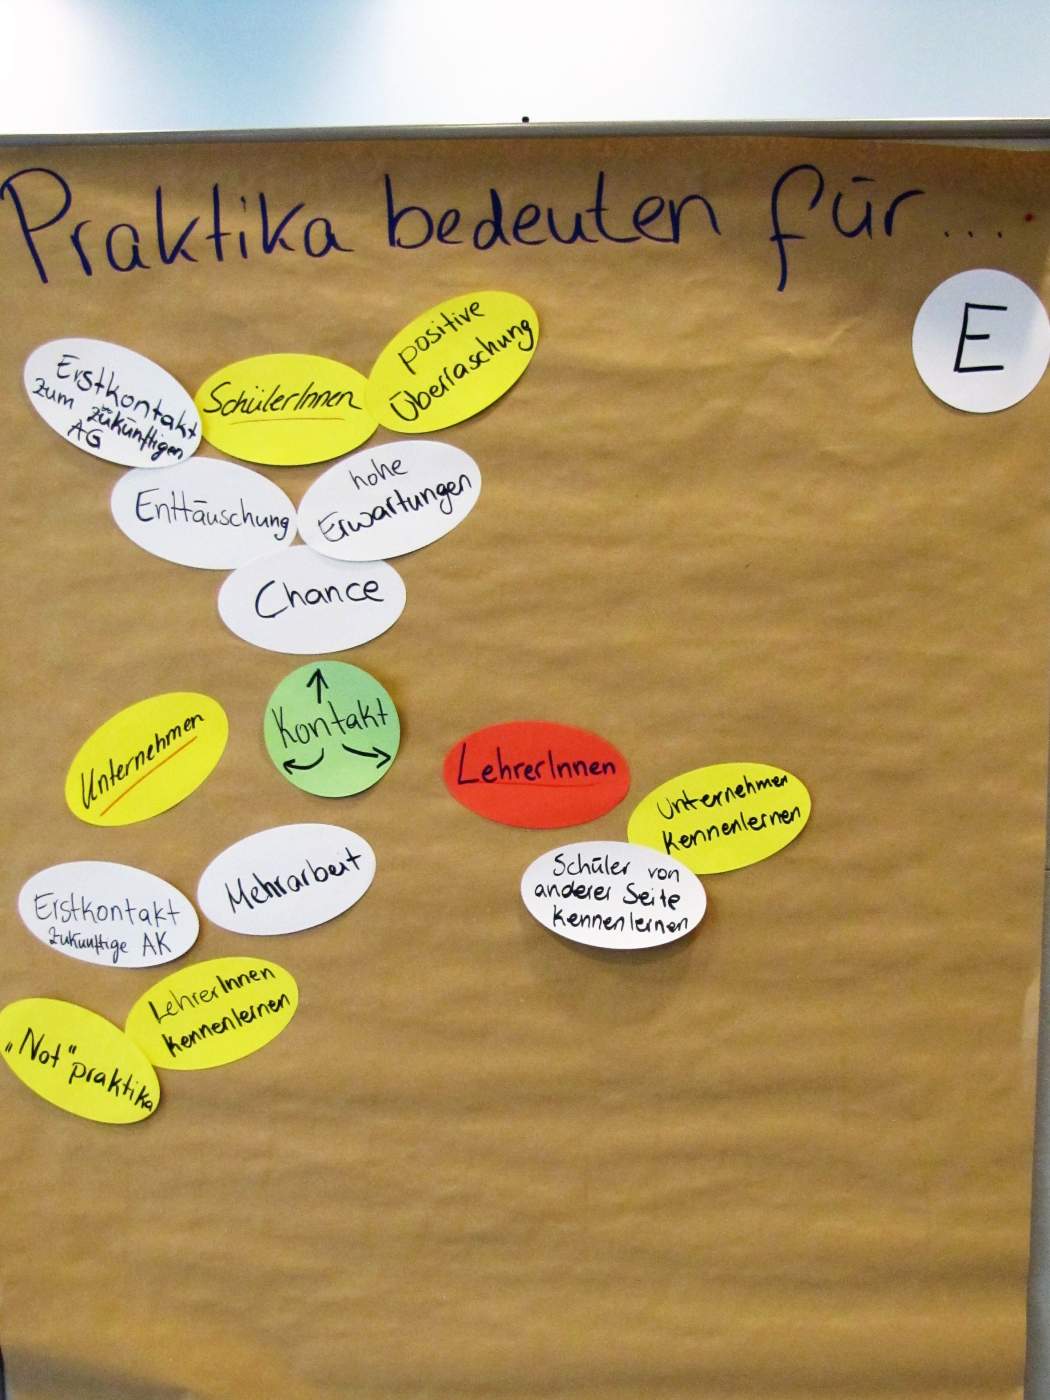 Praktika bedeuten für...
E
Erstkontakt
zum zukünftigen
AG
SchülerInnen
positive
Überraschung
Enttäuschung
hohe
Erwartungen
Chance
Kontakt
Unternehmen
LehrerInnen
Unternehmen
kennenlernen
Schüler von
anderer Seite
kennenlernen
Mehrarbeit
Erstkontakt
zukünftige AK
LehrerInnen
kennenlernen
„Not"
praktika